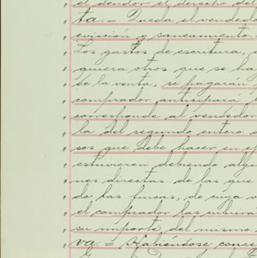 el deudor el derecho del
ta = Queda el vendedo
evicción y saneamiento
Los gastos de escritura,
quiera otros que se ha
de la venta, se pagarán
comprador anticipará
corresponde al vendedor
la del segundo entero
sos que debe hacer en
estuvieren debiendo algu
nes directas de las que
de las fincas, de cuya
el comprador las
su importe del mismo
va = Habiéndose conce